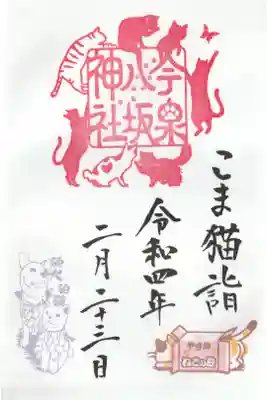 今泉
八坂
神社
こま猫詣
令和四年
二月二十三日